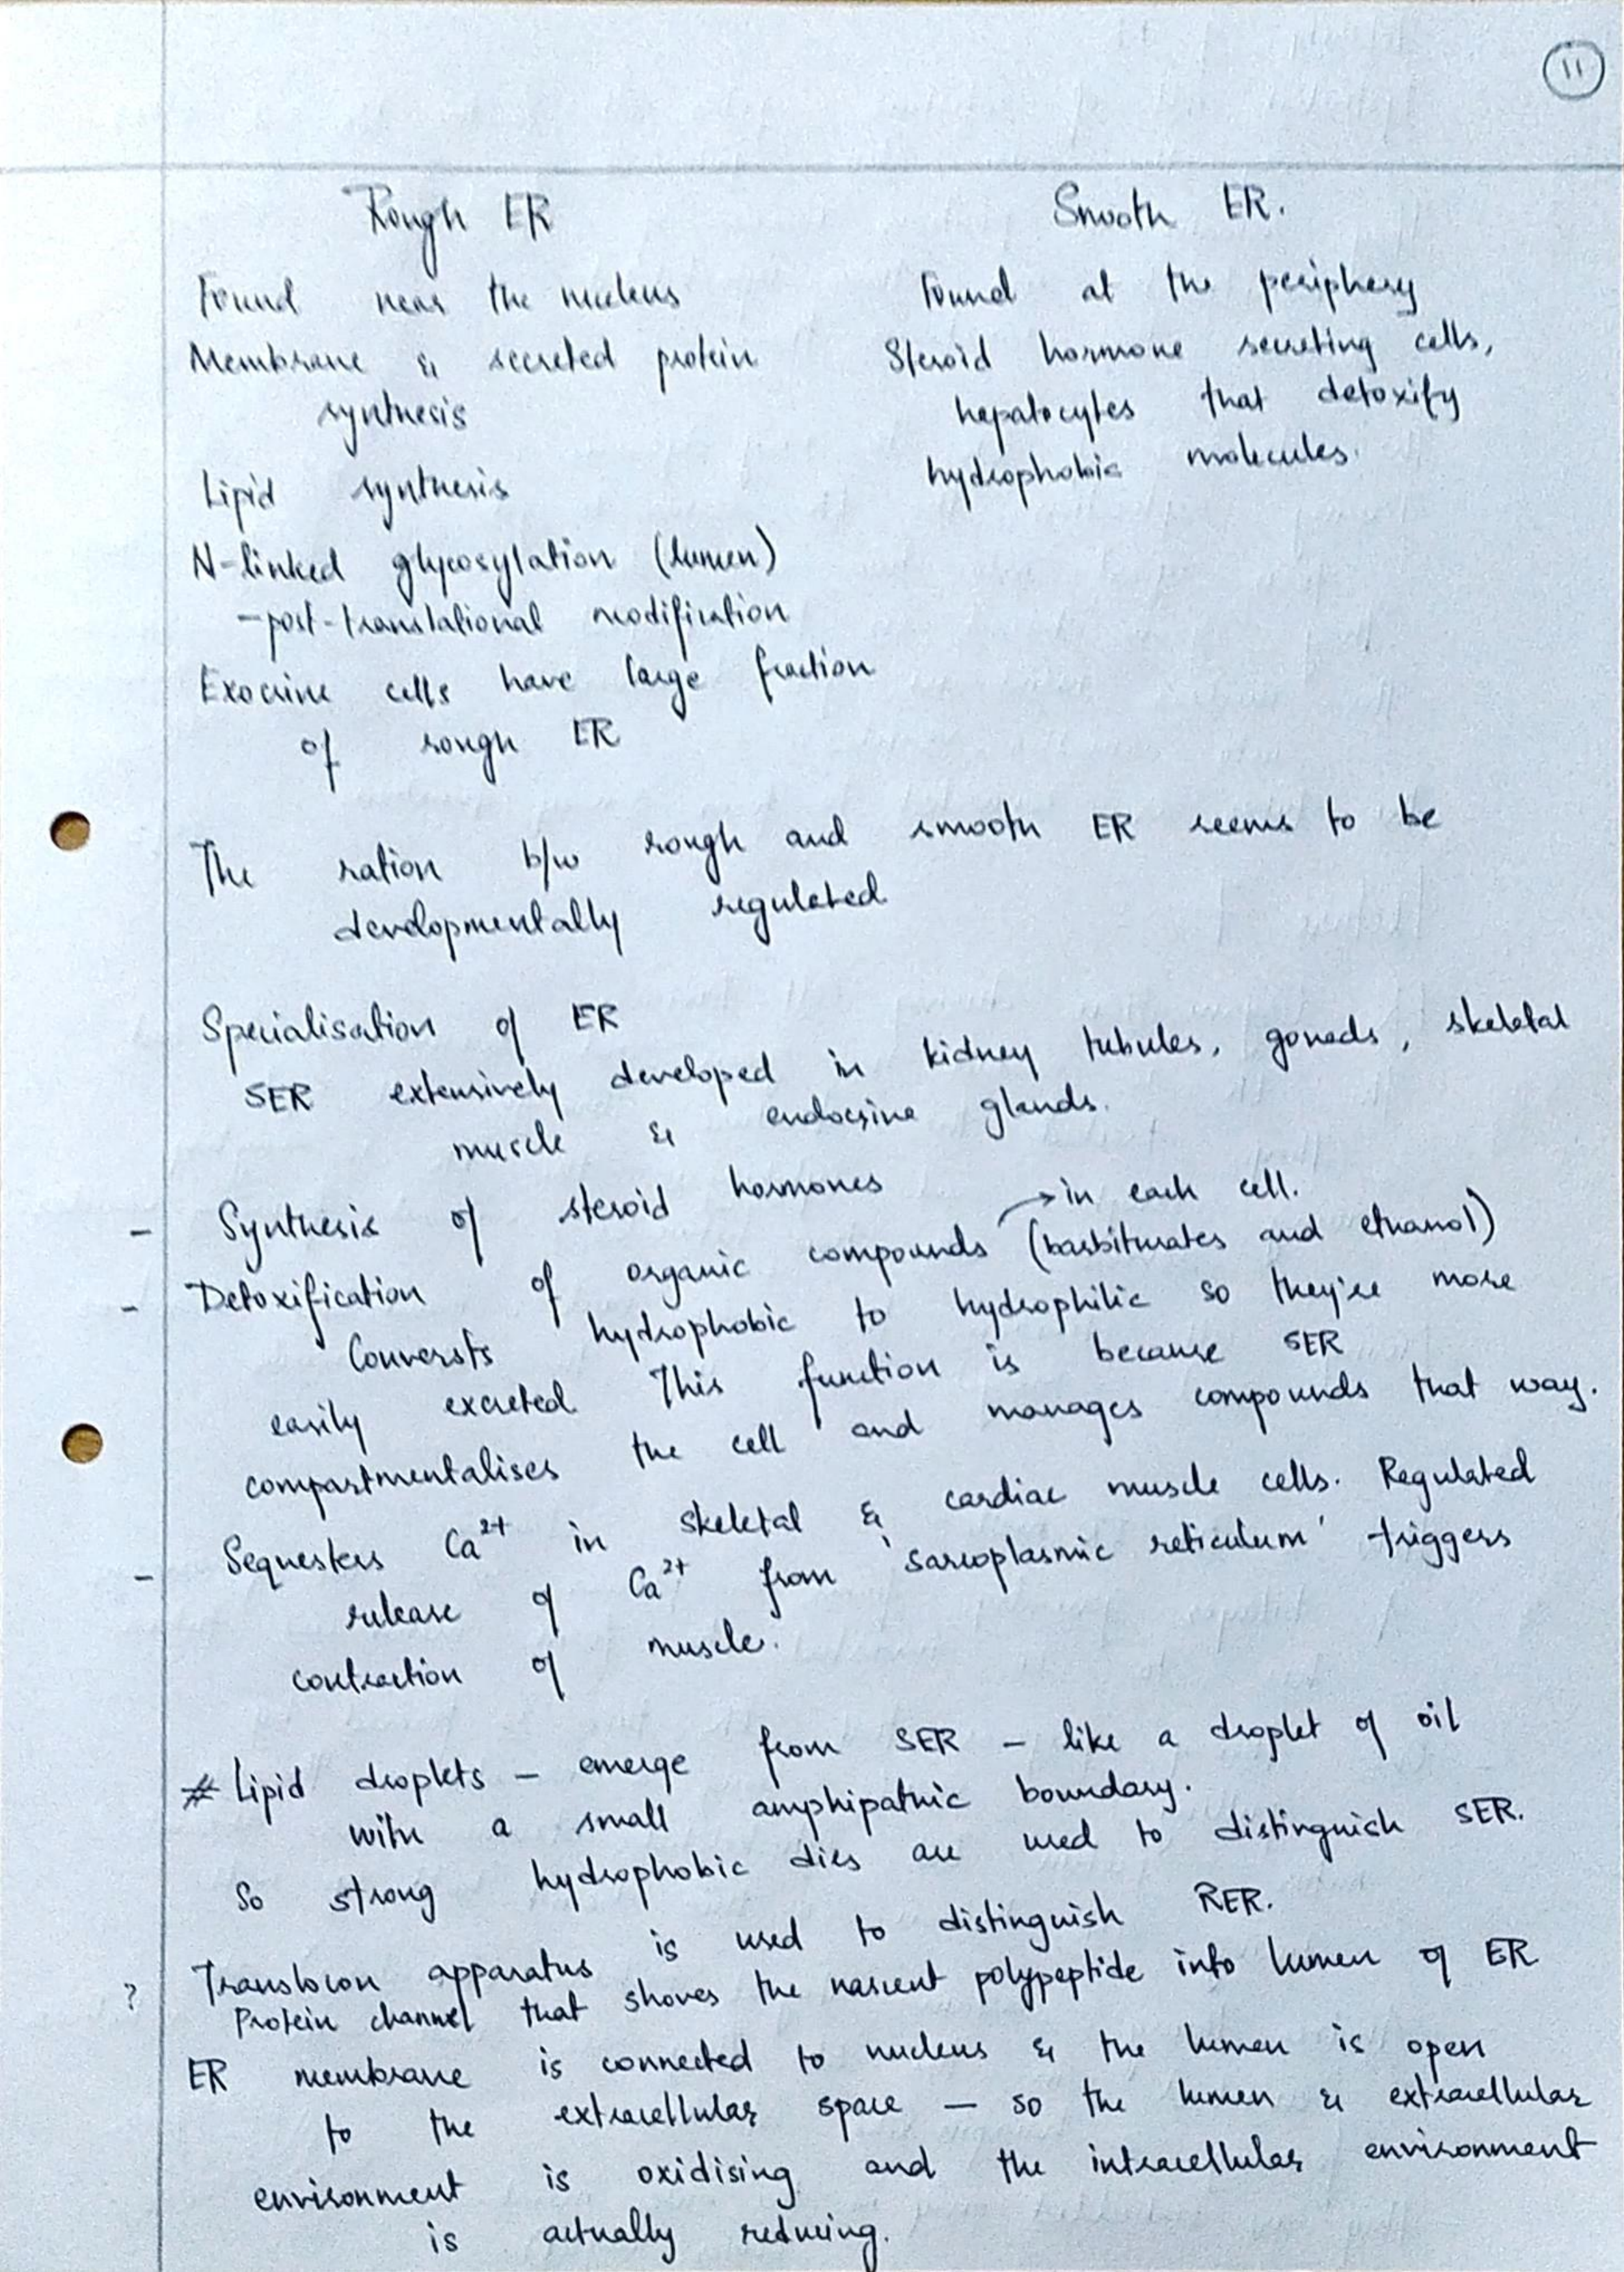 11
Rough ER
Smooth ER.
Found near the nucleus
Membrane & secreted protein
synthesis
Lipid synthesis
N-linked glycosylation (lumen)
-post-translational modification
Exocrine cells have large fraction
of rough ER
Found at the periphery
Steroid hormone secreting cells,
hepatocytes that detoxify
hydrophobic molecules.
The ration b/w rough and smooth ER seems to be
developmentally regulated
Specialisation of ER
SER extensively developed in kidney tubules, gonads, skeletal
muscle & endocrine glands.
- Synthesis of steroid hormones
→ in each cell.
- Detoxification of organic compounds (barbiturates and ethanol)
Converts hydrophobic to hydrophilic so they're more
easily excreted. This function is because SER
compartmentalises the cell and manages compounds that way.
- Sequesters Ca2+ in skeletal & cardiac muscle cells. Regulated
release of Ca2+ from 'sarcoplasmic reticulum' triggers
contraction of muscle.
# Lipid droplets - emerge from SER - like a droplet of oil
with a small amphipathic boundary.
So strong hydrophobic dies are used to distinguish SER.
? Translocon apparatus is used to distinguish RER.
Protein channel that shoves the nascent polypeptide into lumen of ER
ER membrane is connected to nucleus & the lumen is open
to the extracellular space — so the lumen & extracellular
environment is oxidising and the intracellular environment
is actually reducing.